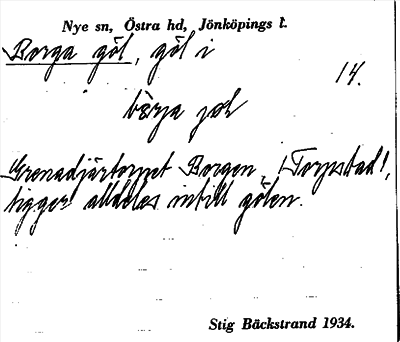 Nye sn, Östra hd, Jönköpings l.
Borga göl, göl i
14.
börja
Grenadjärtorpet Borgen, i Torpstad,
ligger alldeles intill gölen.
Stig Bäckstrand 1934.